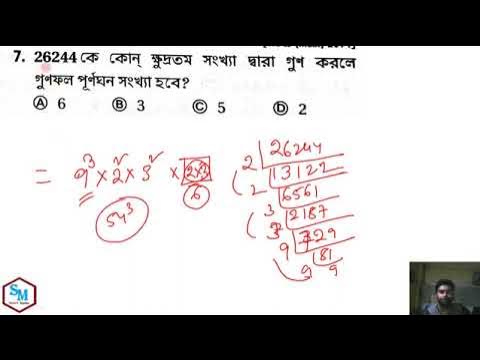 7. 26244 কে কোন্ ক্ষুদ্রতম সংখ্যা দ্বারা গুণ করলে
গুণফল পূর্ণঘন সংখ্যা হবে?
Ⓐ 6 Ⓑ 3 Ⓒ 5 Ⓓ 2
= 9³ × 2² × 3² × 2×3
6
54³
2 26244
2 13122
3 6561
3 2187
9 729
9 81
9
SM